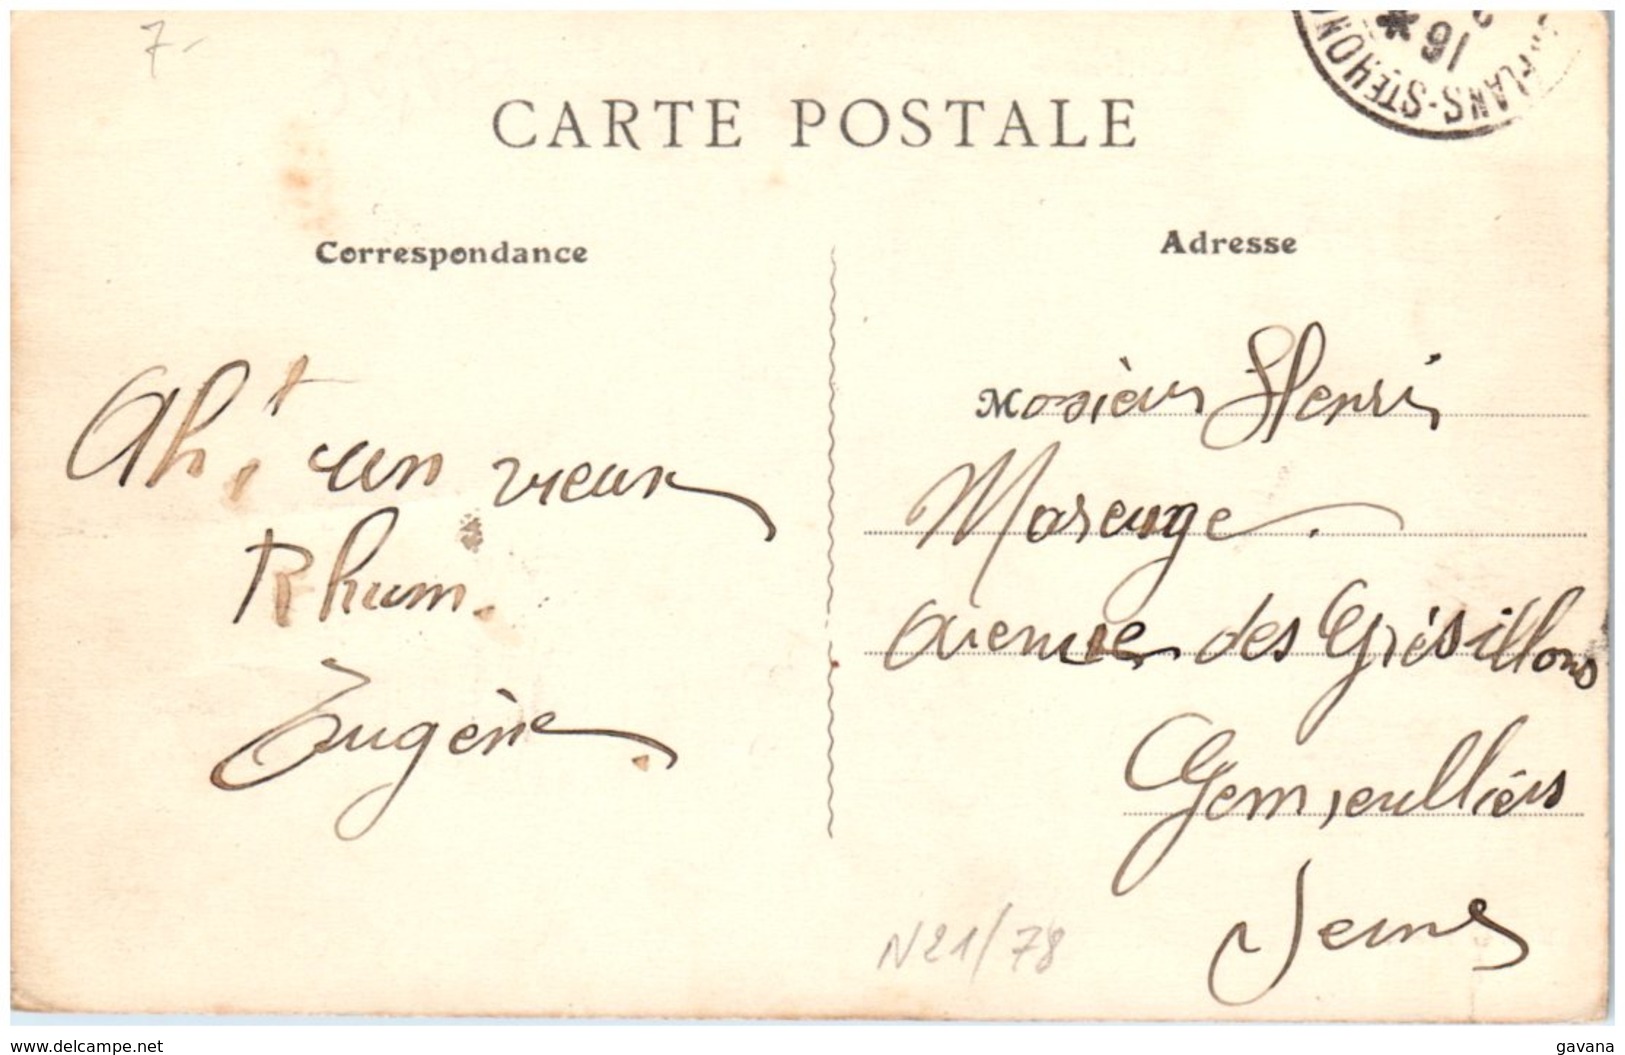 7-
CARTE POSTALE
16
FLANS-STE-HON
Correspondance
Adresse
Ah! un vieux
Rhum.
Eugène
Mosieur Henri
Mareuge.
Avenue des Grésillons
Gennevilliers
Seine
N21/78
www.delcampe.net
gavana